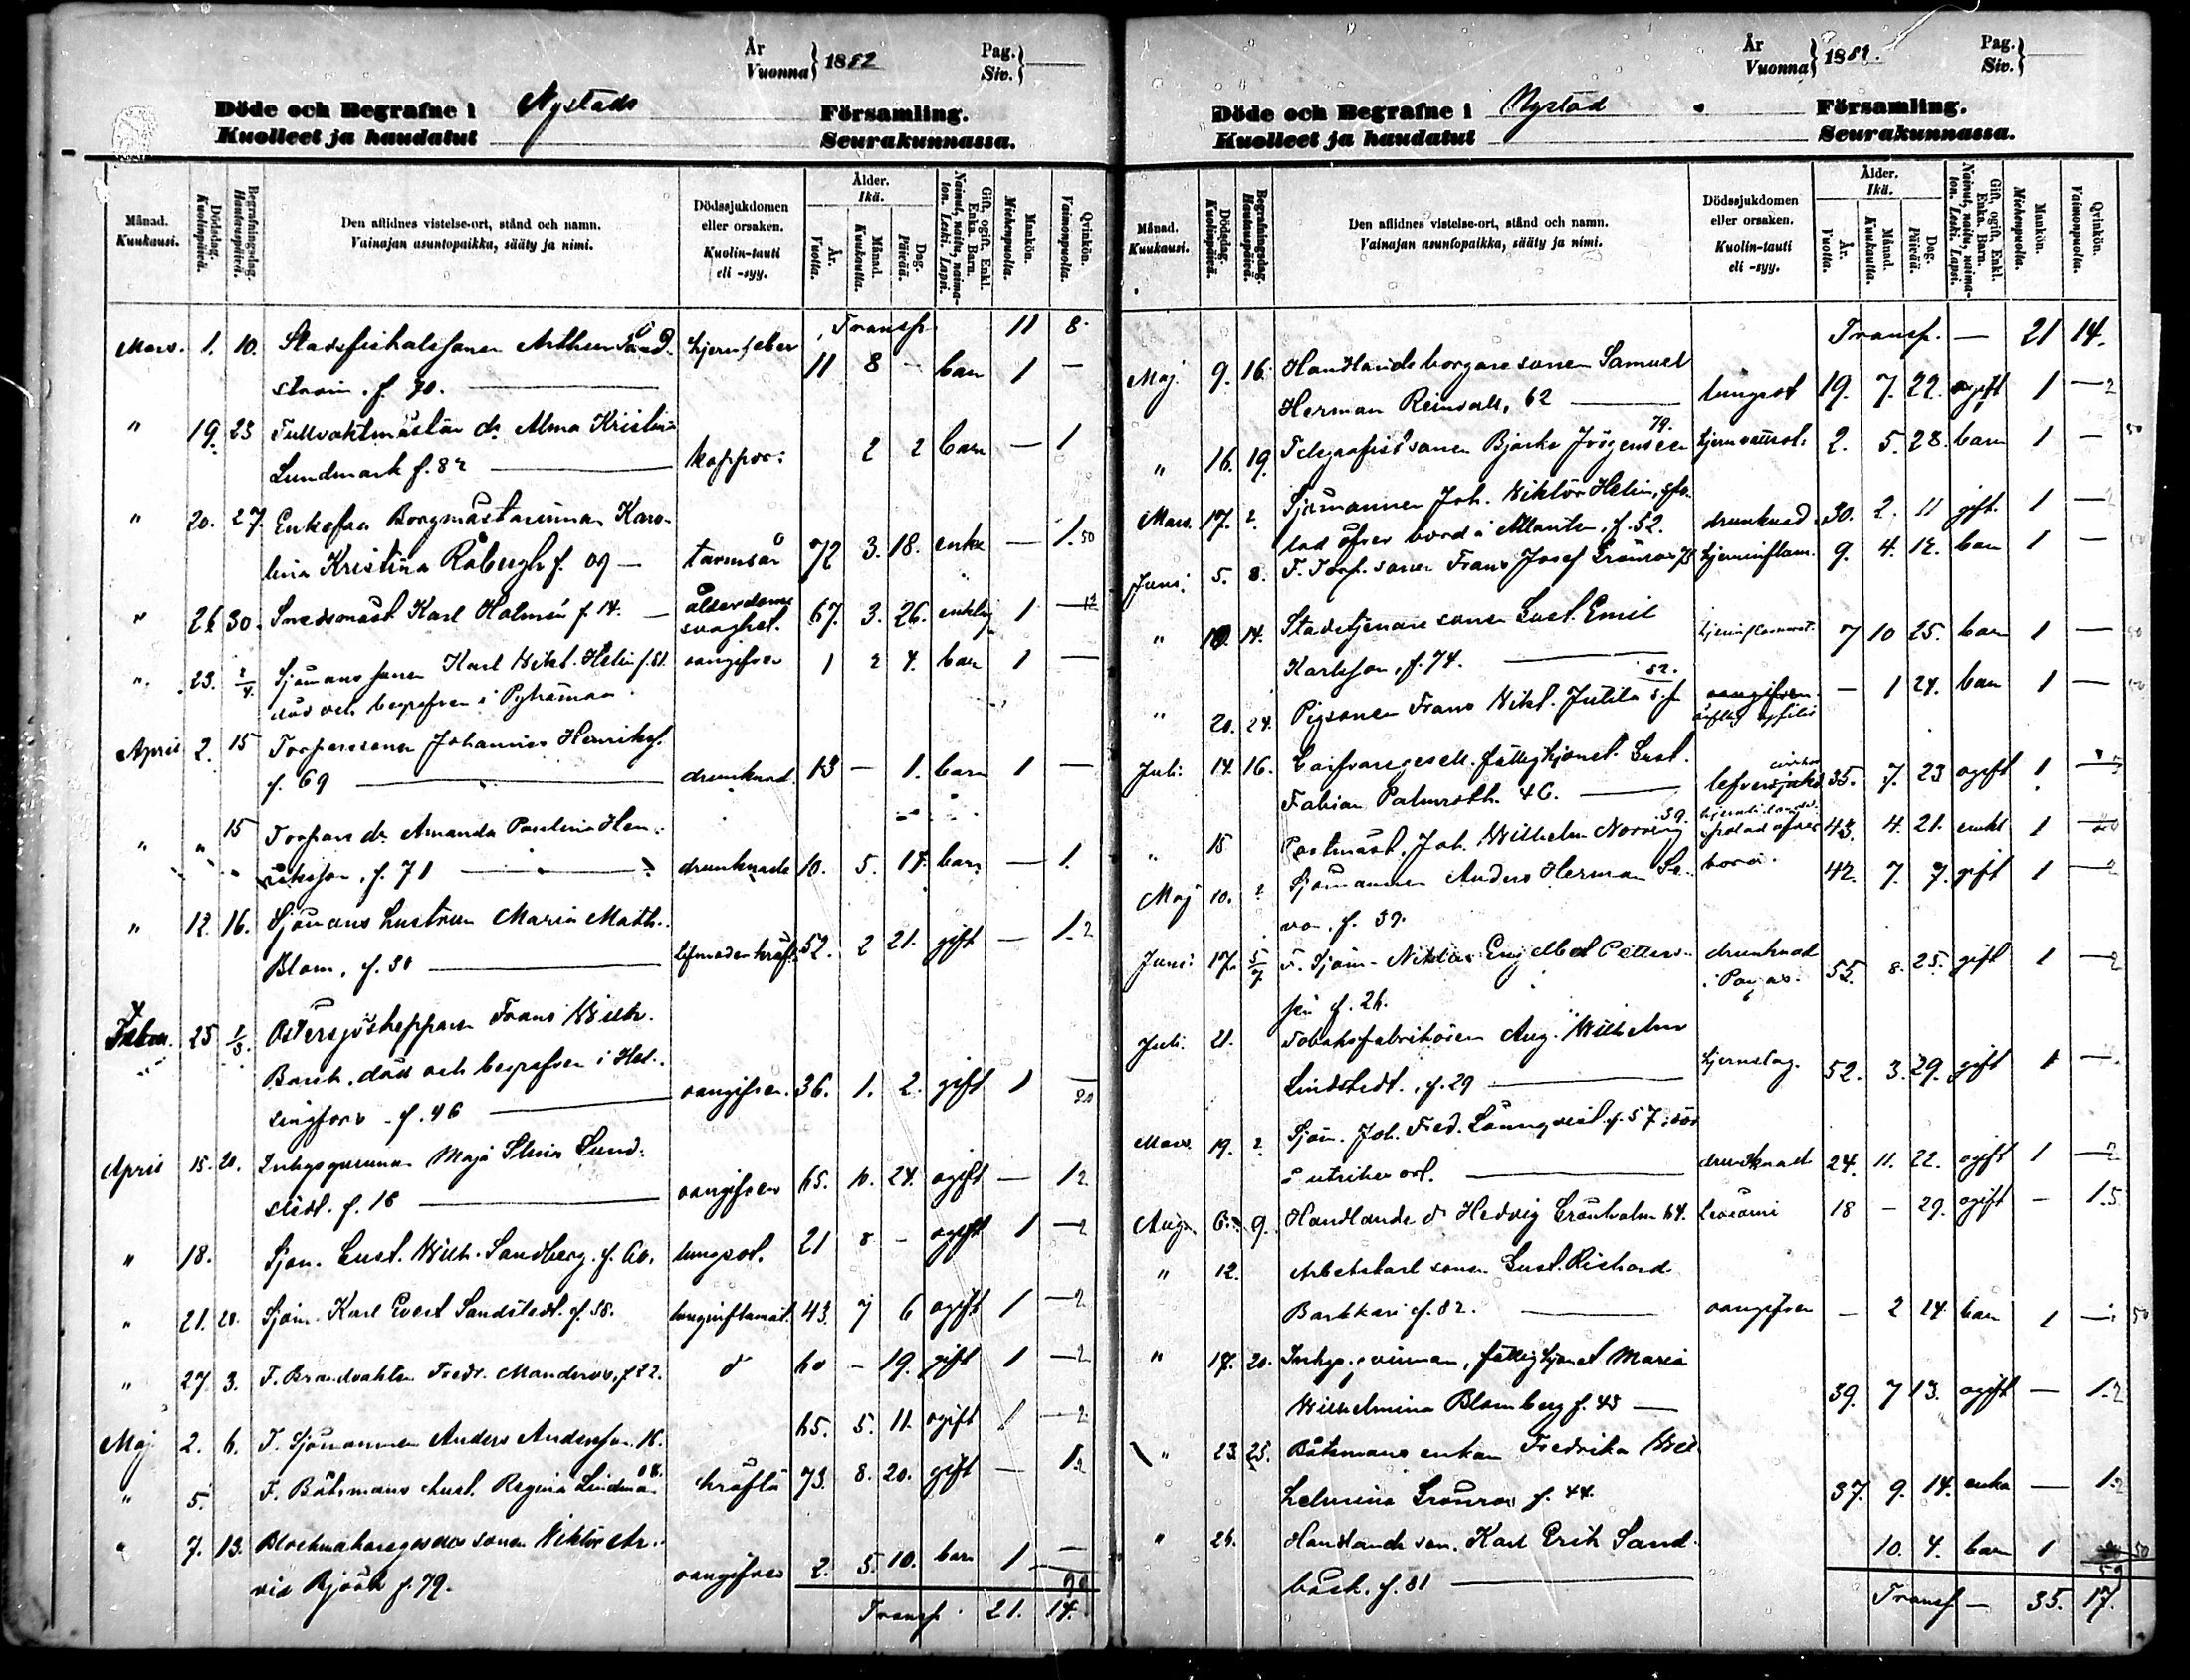 År
Vuonna } 1882
Pag.
Siv. }
Döde och Begrafne i Nystads Församling.
Kuolleet ja haudatut Seurakunnassa.
Månad.
Kuukausi.
Dödsdag.
Kuolinpäivä.
Begrafningsdag.
Hautauspäivä.
Den aflidnes vistelse-ort, stånd och namn.
Vainajan asuntopaikka, sääty ja nimi.
Dödssjukdomen eller orsaken.
Kuolin-tauti eli -syy.
Ålder.
Ikä.
År.
Vuotta.
Månad.
Kuukautta.
Dag.
Päivää.
Gift, ogift, Enkl. Enka. Barn.
Nainut, naitu, naimaton. Leski. Lapsi.
Mankön.
Miehenpuolta.
Qvinkön.
Vaimonpuolta.
Transp. 11 8
Mars. 1. 10. Stadsfiskalssonen Arthur Sand- hjernfeber
ström. f. 70. — 11 8 - barn 1 —
" 19. 23 Tullvaktmästar dr Alma Kristina
Lundmark f. 82 — koppor: 2 2 barn — 1
" 20. 27. Enkefru Borgmästarinnan Karo-
lina Kristina Råbergh f. 09 — tarmsår 72 3. 18. enka — 1. 50
" 26 30. Smedsmäst. Karl Holmén f. 14. — ålderdoms
svaghet. 67. 3. 26. enkling 1 —
". 23. 2/4. Sjömans sonen Karl Vikt. Helin f. 81. oangifven 1 2 4. barn 1 —
död och begrafven i Pyhämaa
April 2. 15 Torparesonen Johannes Henriks.
f. 69 — drunknad 13 — 1. barn 1 —
" " 15 Torpare dr Amanda Paulina Hen-
riksson, f. 71 — drunknade 10. 5. 14. barn — 1.
" 12. 16. Sjömans hustrun Maria Math.
Blom, f. 30 — lifmoderkräft. 52. 2 21. gift — 1. 2
Febru. 25 1/3. Östersjöskepparen Frans Wilh.
Barck, död och begrafven i Hel-
singfors. f. 46 — oangifven. 36. 1. 2. gift 1 —
April 15. 20. Inhysqvinnan Maja Stina Lund-
stedt. f. 16 — oangifven 65. 10. 24. ogift — 1 2
" 18. Sjöm. Gust. Wilh. Sandberg. f. 60. lungsot. 21 8 - ogift 1 — 2
" 21. 28. Sjöm. Karl Evert Sandstedt. f. 38. lunginflamat. 43. 7 6 ogift 1 — 2
" 27. 3. F. Brandvakten Fredr. Mandervo, f 22. d 60 — 19. gift 1 — 2
Maj 2. 6. F. Sjömannen Anders Andersson. 16. 65. 5. 11. ogift 1 — 2
" 5. F. Båtsmans hust. Regina Lindman 08. kräfta 73. 8. 20. gift — 1 2
" 7. 13. Blockmakaregesäll sonen Viktor Ar-
vid Björk f. 79. oangifven 2. 5. 10. barn 1 —
Transp. 21. 14.
År
Vuonna } 1882.
Pag.
Siv. }
Döde och Begrafne i Nystad Församling.
Kuolleet ja haudatut Seurakunnassa.
Månad.
Kuukausi.
Dödsdag.
Kuolinpäivä.
Begrafningsdag.
Hautauspäivä.
Den aflidnes vistelse-ort, stånd och namn.
Vainajan asuntopaikka, sääty ja nimi.
Dödssjukdomen eller orsaken.
Kuolin-tauti eli -syy.
Ålder.
Ikä.
År.
Vuotta.
Månad.
Kuukautta.
Dag.
Päivää.
Gift, ogift, Enkl. Enka. Barn.
Nainut, naitu, naimaton. Leski. Lapsi.
Mankön.
Miehenpuolta.
Qvinkön.
Vaimonpuolta.
Transp. — 21 14.
Maj 9. 16. Handlande borgare sonen Samuel
Herman Reinvall, 62 — lungsot 19. 7. 22. ogift 1 — 2
" 16. 19. Telegrafist sonen Bjarke Jörgensen 79. hjernvattusot. 2. 5. 28. barn 1 — 50
Mars. 17. ? Sjömannen Joh. Viktor Helin, spo-
lad öfver bord å Atlanten, f. 52. drunknad. 30. 2. 11 gift. 1 —
Juni. 5. 8. F. Torp. sonen Frans Josef Grönros 73 hjerninflam. 9. 4. 12. barn 1 —
" 10. 14. Stadstjenare sonen Gust. Emil
Karlsson, f. 74. — hjerninflammat. 7 10 25. barn 1 — 50
" 20. 24. Pigsonen Frans Vikt. Jutila 82. oangifven
ärftlig syfilis — 1 24. barn 1 — 50
Juli. 14. 16. Garfvaregesell. fattighjonet Gust.
Fabian Palmroth. 46. — lefversjukd 35. 7. 23 ogift 1 —
" 15 Postmäst. Joh. Wilhelm Norring 39. 43. 4. 21. enkl 1 —
Maj 10. ? Sjömannen Anders Herman Sa- spolad öfver bord. 42. 7. 7. gift 1 — 2
von, f. 39.
Juni. 17. 5/7 F. Sjöm. Niklas Engelbert Petters- drunknad
sén f. 26. i Pargas. 55. 8. 25. gift 1 — 2
Juli. 21. Tobaksfabrikören Aug. Wilhelm
Lindstedt., f. 29 — hjernslag. 52. 3. 29. gift 1 —
Mars. 19. ? Sjöm. Joh. Fred. Lönnqvist f. 57; död
å utrikes ort. — drunknade 24. 11. 22. ogift 1 — 2
Aug. 6. 9. Handlande d Hedvig Grönholm 64. 18 — 29. ogift — 1. 5
" 12. Arbetskarl sonen Gust. Richard
Barkkari f. 82. — oangifven — 2 14 barn 1 — 50
" 17. 20. Inhys. qvinnan, fattighjonet Maria
Wilhelmina Blomberg f. 43 — 39. 7 13. ogift — 1 2
" 23 25. Båtsmans enkan Fredrika Wil-
helmina Grönros f. 44. 37. 9. 14. enka — 1 2
" 24. Handlande son. Karl Erik Sand-
bäck. f. 81 — 10. 4. barn 1 — 50
Transp — 35. 17.